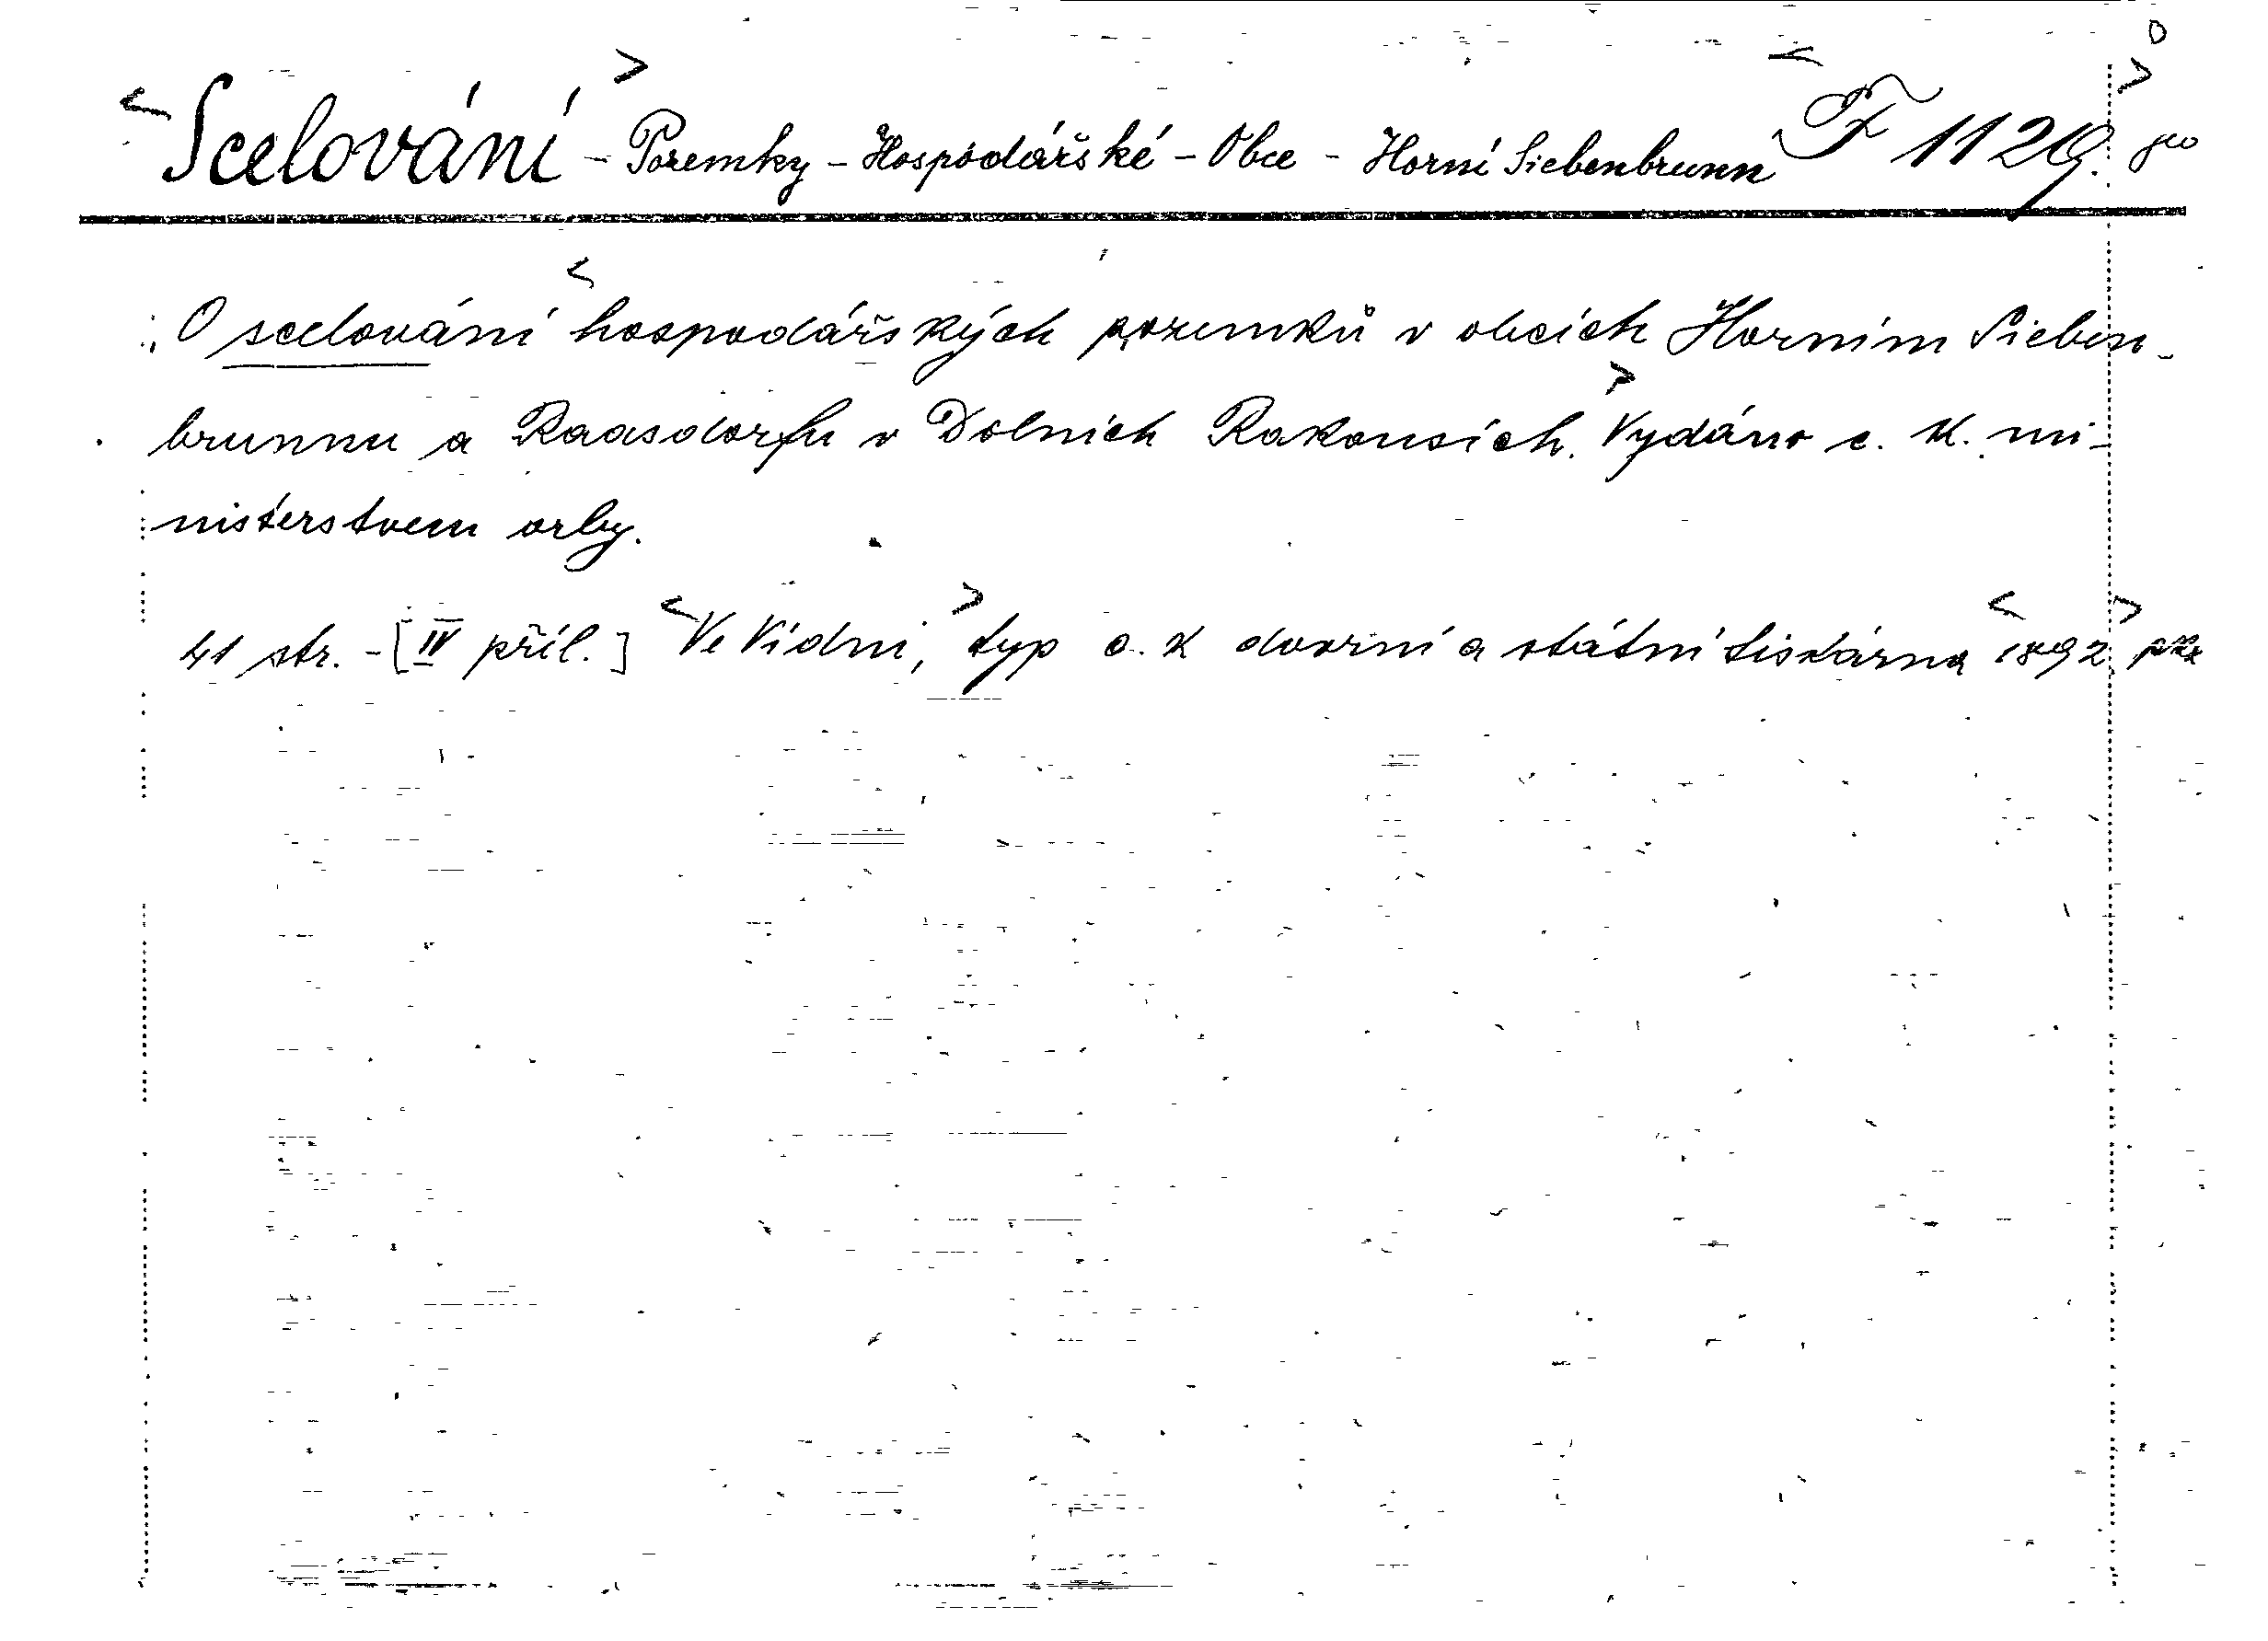 <Scelování> - Pozemky - Hospodářské - Obce - Horní Siebenbrunn <F 1129.>
O scelování <hospodářských pozemků v obcích Horním Sieben-
brunnu a Raasdorfu v Dolních Rakousích.> Vydáno c. k. mi-
nisterstvem orby.
41 str. - [IV příl.] <Ve Vídni,> typ c. k dvorní a státní tiskárna <1892>